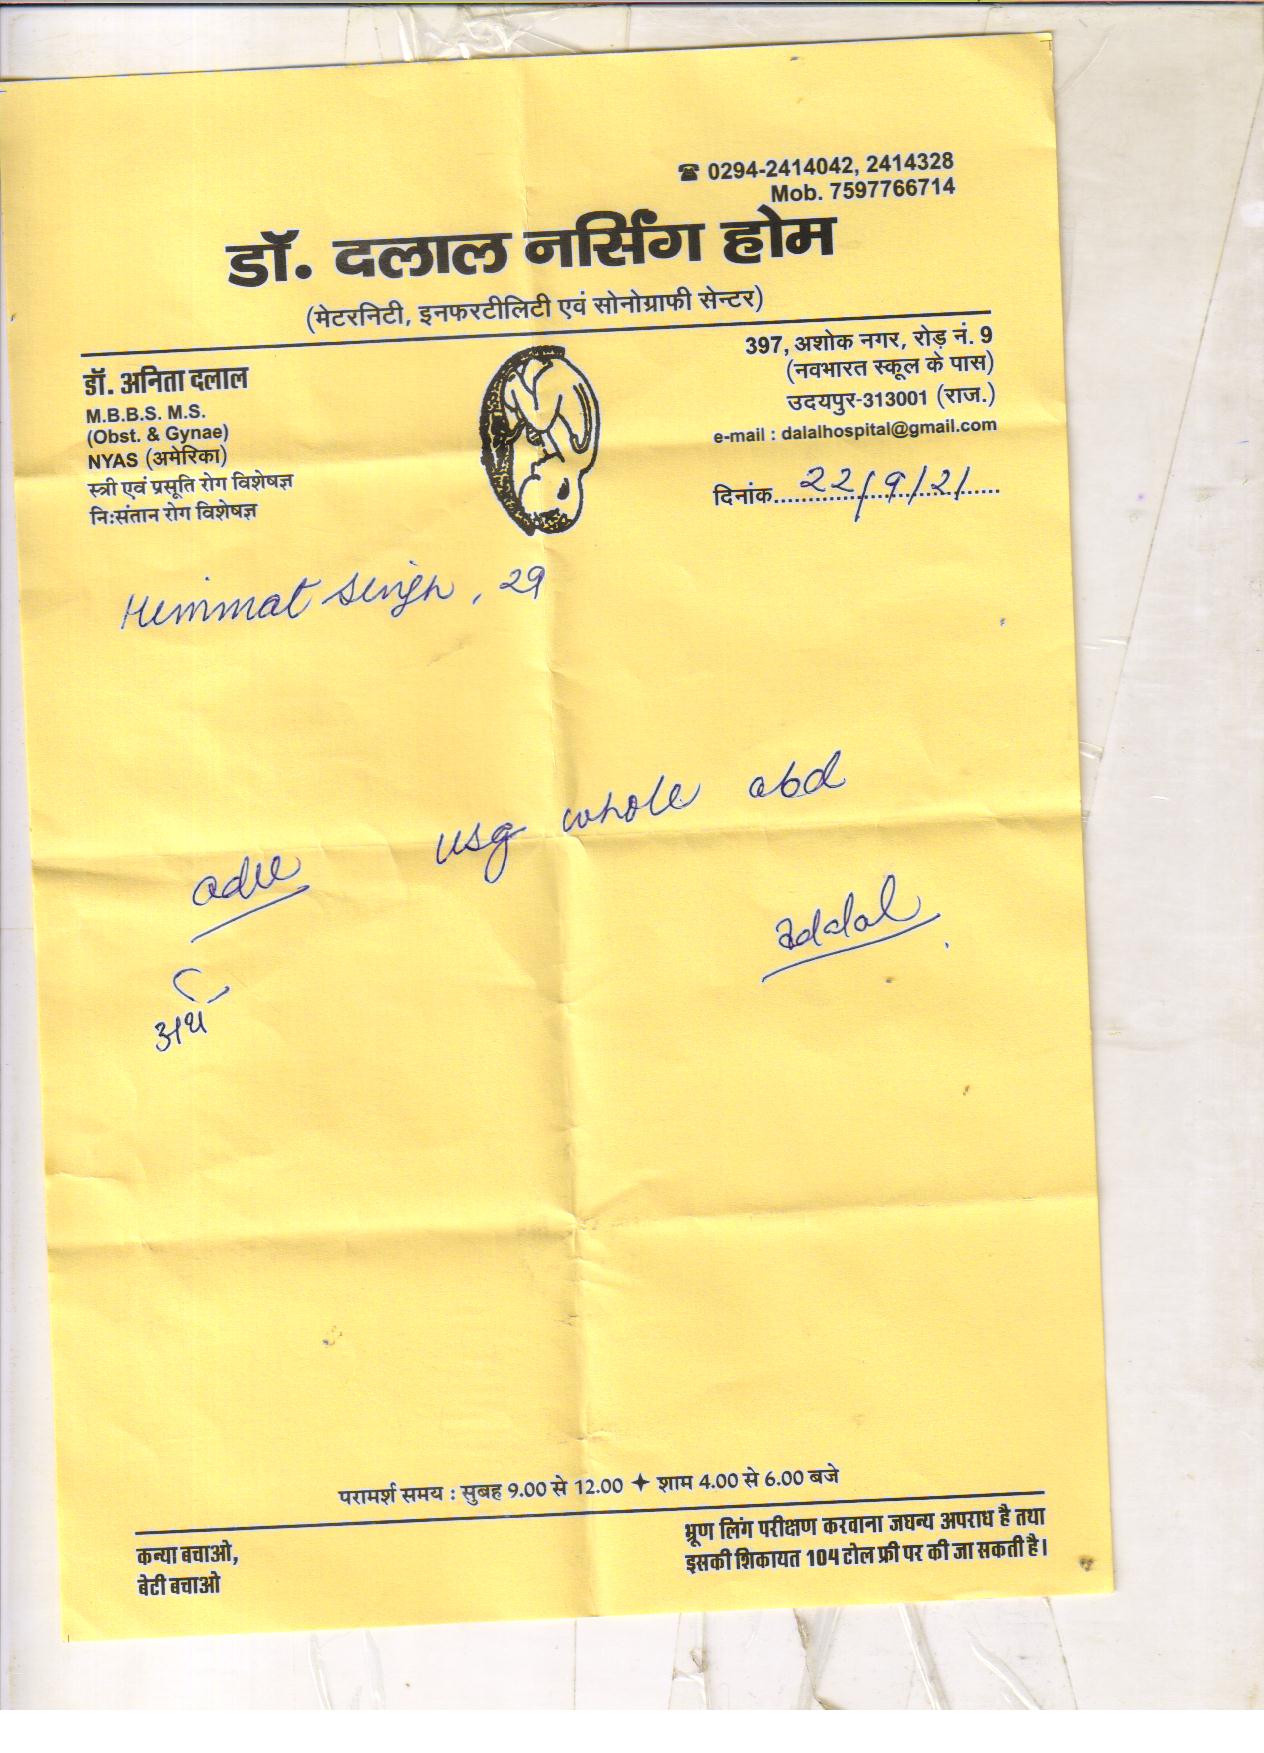 ☎ 0294-2414042, 2414328
Mob. 7597766714
डॉ. दलाल नर्सिंग होम
(मेटरनिटी, इनफरटीलिटी एवं सोनोग्राफी सेन्टर)
डॉ. अनिता दलाल
M.B.B.S. M.S.
(Obst. & Gynae)
NYAS (अमेरिका)
स्त्री एवं प्रसूति रोग विशेषज्ञ
निःसंतान रोग विशेषज्ञ
397, अशोक नगर, रोड़ नं. 9
(नवभारत स्कूल के पास)
उदयपुर-313001 (राज.)
e-mail : dalalhospital@gmail.com
दिनांक 22/9/21
Himmat Singh, 29
usg whole abd
adalal
अर्थ
परामर्श समय : सुबह 9.00 से 12.00 ✦ शाम 4.00 से 6.00 बजे
कन्या बचाओ,
बेटी बचाओ
भ्रूण लिंग परीक्षण करवाना जघन्य अपराध है तथा
इसकी शिकायत 104 टोल फ्री पर की जा सकती है।